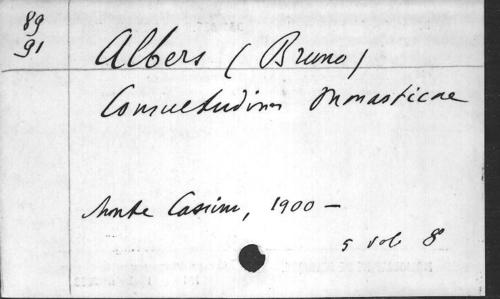 89
91
Albers (Bruno)
Consuetudines Monasticae
Monte Cassino, 1900 -
5 vol 8°